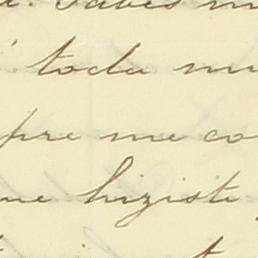 Sabes m
toda mu
pre me co
ue hiziste